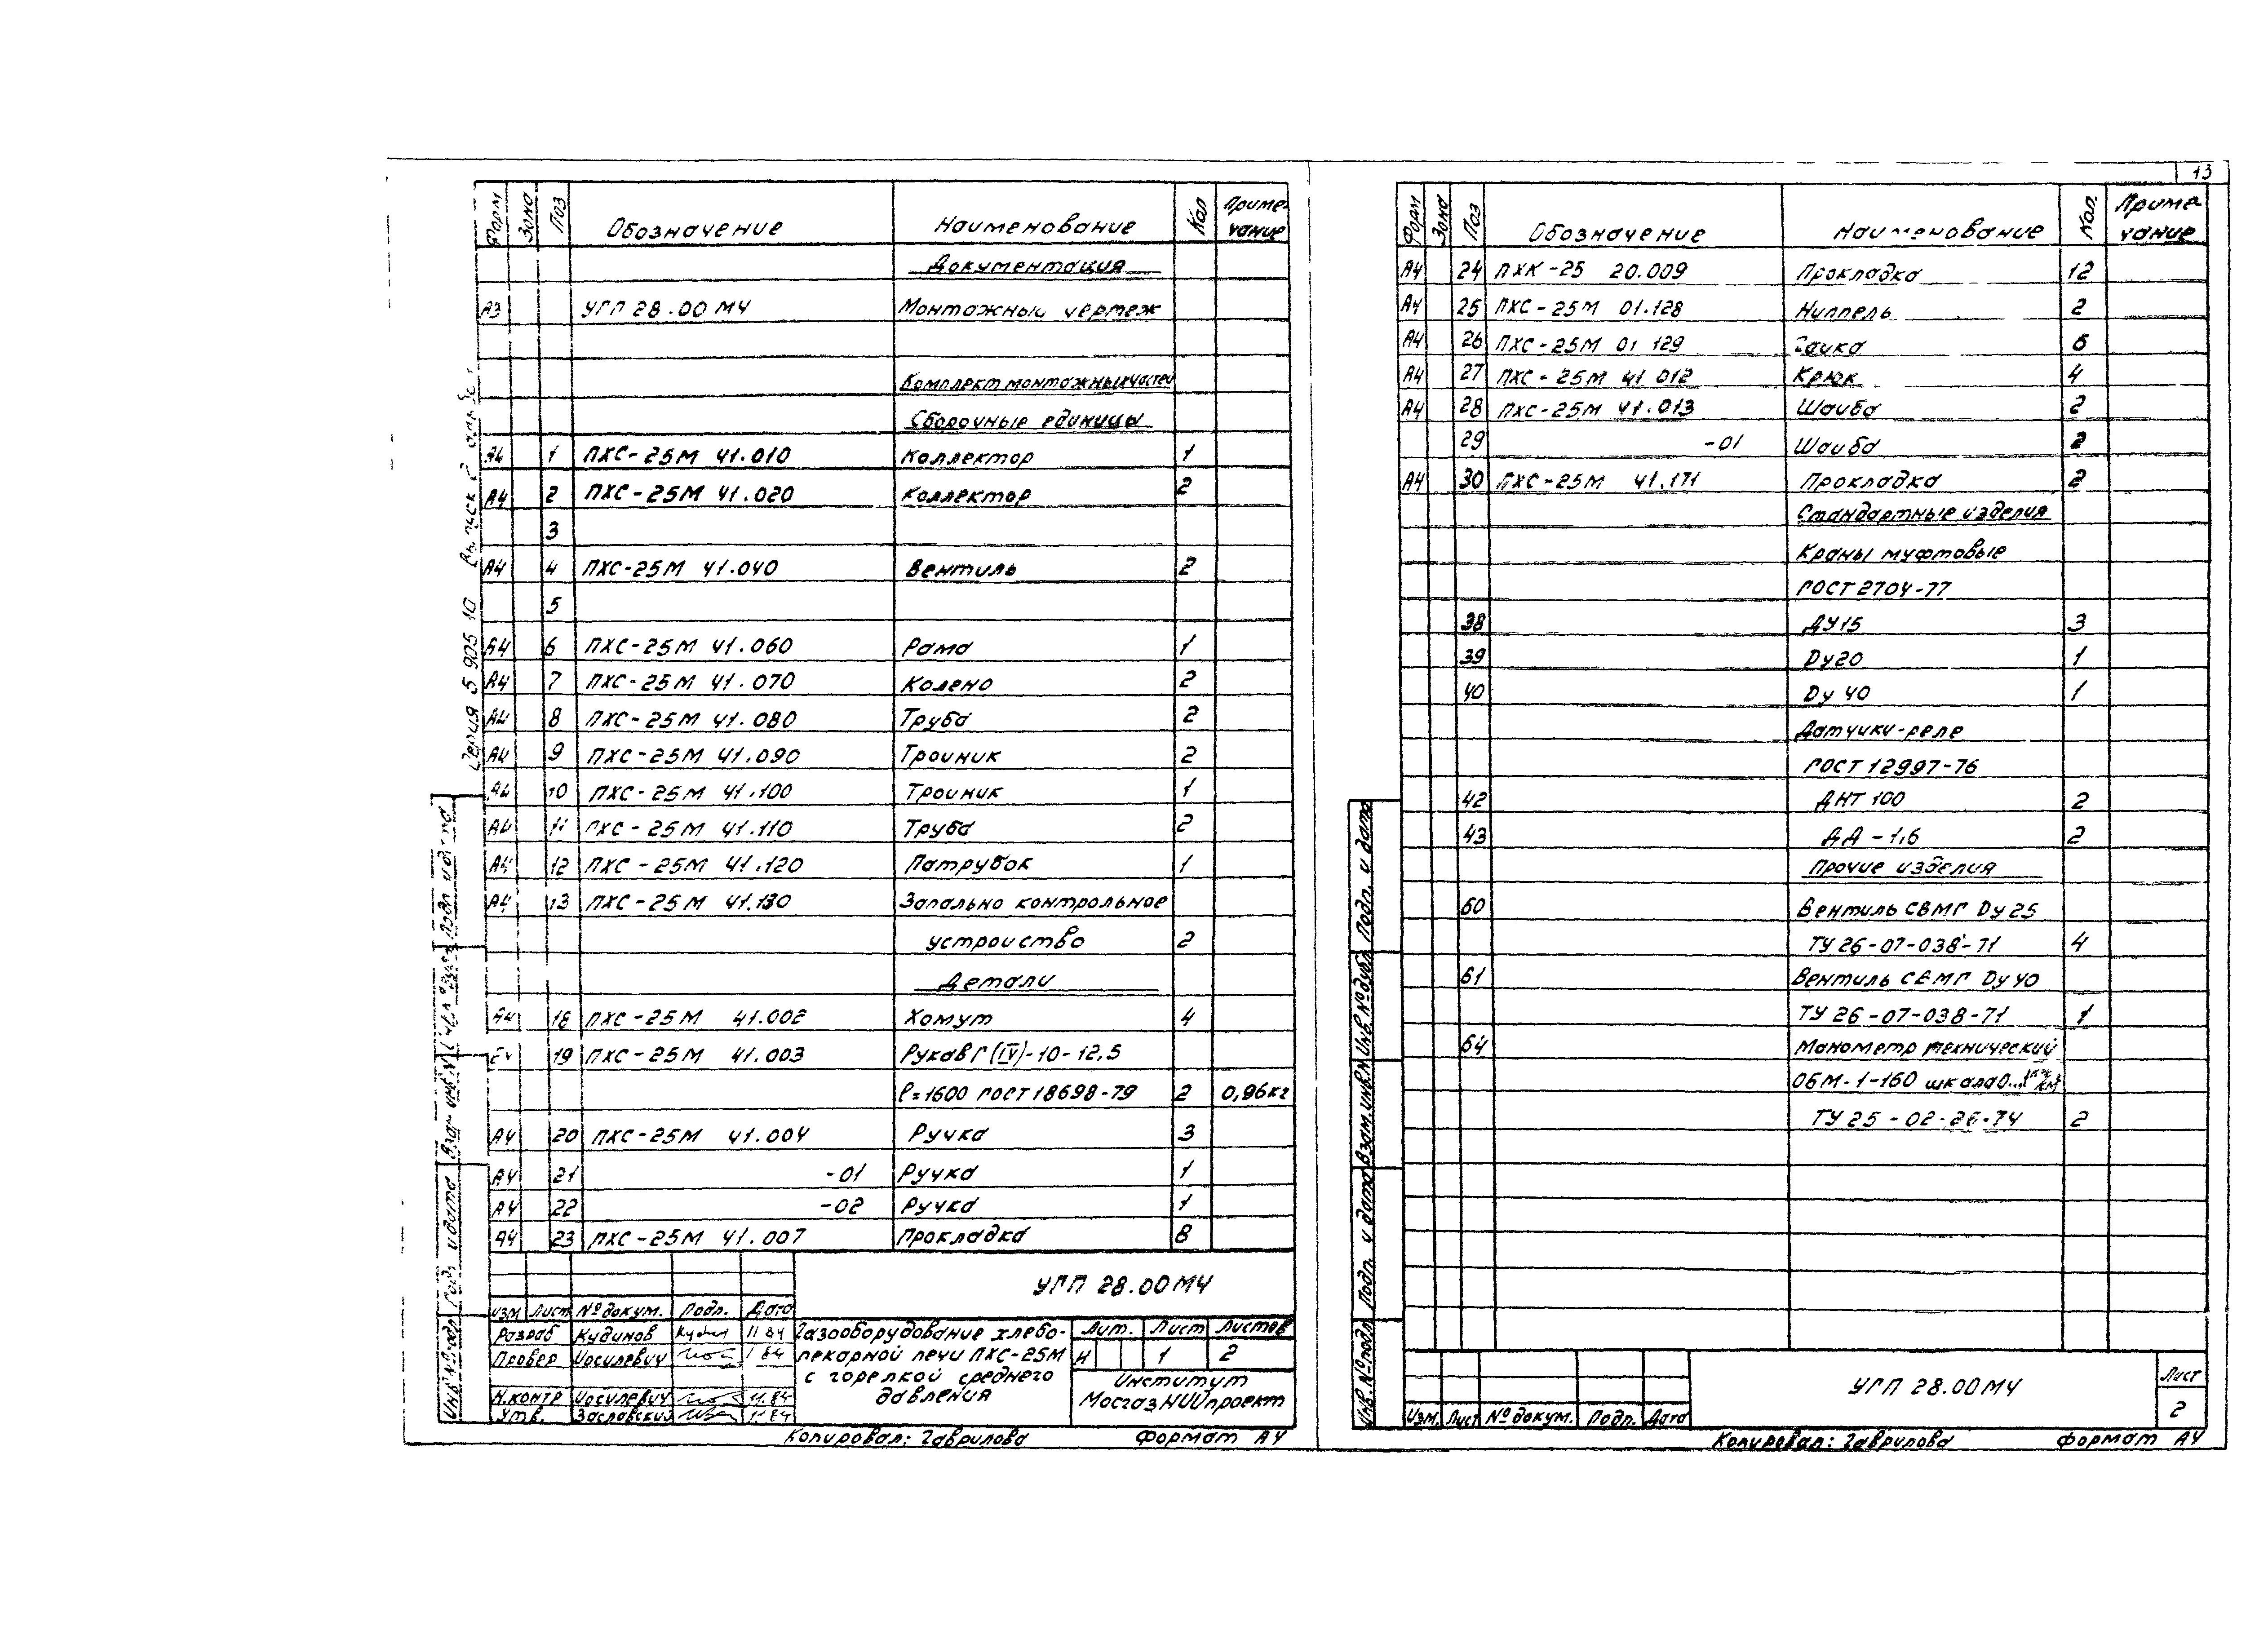 13
Форм Зона Поз Обозначение Наименование Кол Примечание
Документация
А3 УГП 28.00 МЧ Монтажный чертеж
Комплект монтажных частей
Сборочные единицы
А4 1 ПХС-25М 41.010 Коллектор 1
А4 2 ПХС-25М 41.020 Коллектор 2
3
А4 4 ПХС-25М 41.040 Вентиль 2
5
А4 6 ПХС-25М 41.060 Рама 1
А4 7 ПХС-25М 41.070 Колено 2
А4 8 ПХС-25М 41.080 Труба 2
А4 9 ПХС-25М 41.090 Троиник 2
А4 10 ПХС-25М 41.100 Троиник 1
А4 11 ПХС-25М 41.110 Труба 2
А4 12 ПХС-25М 41.120 Патрубок 1
А4 13 ПХС-25М 41.130 Запально контрольное
устроиство 2
Детали
А4 18 ПХС-25М 41.002 Хомут 4
19 ПХС-25М 41.003 Рукав Г(IV)-10-12,5
ℓ=1600 ГОСТ 18698-79 2 0,96кг
А4 20 ПХС-25М 41.004 Ручка 3
А4 21 -01 Ручка 1
А4 22 -02 Ручка 1
А4 23 ПХС-25М 41.007 Прокладка 8
УГП 28.00МЧ
Изм Лист № докум. Подп. Дата
Разраб Кудинов 11 84
Провер Иосилевич 84
Н.контр Иосилевич 11.84
Утв. Заславский 11 84
Газооборудование хлебо-
пекарной печи ПХС-25М
с горелкой среднего
давления
Лит. Лист Листов
И 1 2
Институт
МосгазНИИпроект
Копировал: Гаврилова Формат А4
Серия 5 905 10 Выпуск 2
Инв № подл Подп и дата Взам инв.№ Инв № дубл Подп и дата
Форм Зона Поз Обозначение Наименование Кол. Примечание
А4 24 ПХК-25 20.009 Прокладка 12
А4 25 ПХС-25М 01.128 Ниппель 2
А4 26 ПХС-25М 01 129 Гаика 6
А4 27 ПХС-25М 41 012 Крюк 4
А4 28 ПХС-25М 41.013 Шаиба 2
29 -01 Шаиба 2
А4 30 ПХС-25М 41.171 Прокладка 2
Стандартные изделия
Краны муфтовые
ГОСТ 2704-77
38 ДУ15 3
39 Dу20 1
40 Dу 40 1
Датчики-реле
ГОСТ 12997-76
42 ДНТ 100 2
43 ДД-1,6 2
Прочие изделия
60 Вентиль СВМГ Dу 25
ТУ 26-07-038-71 4
61 Вентиль СВМГ Dу 40
ТУ 26-07-038-71 1
64 Манометр технический
ОБМ-1-160 шкала 0...1
ТУ 25-02-26-74 2
Инв. № подл Подп. и дата Взам.инв.№ Инв № дубл Подп. и дата
Изм. Лист № докум. Подп. Дата
УГП 28.00МЧ
Лист
2
Копировал: Гаврилова Формат А4